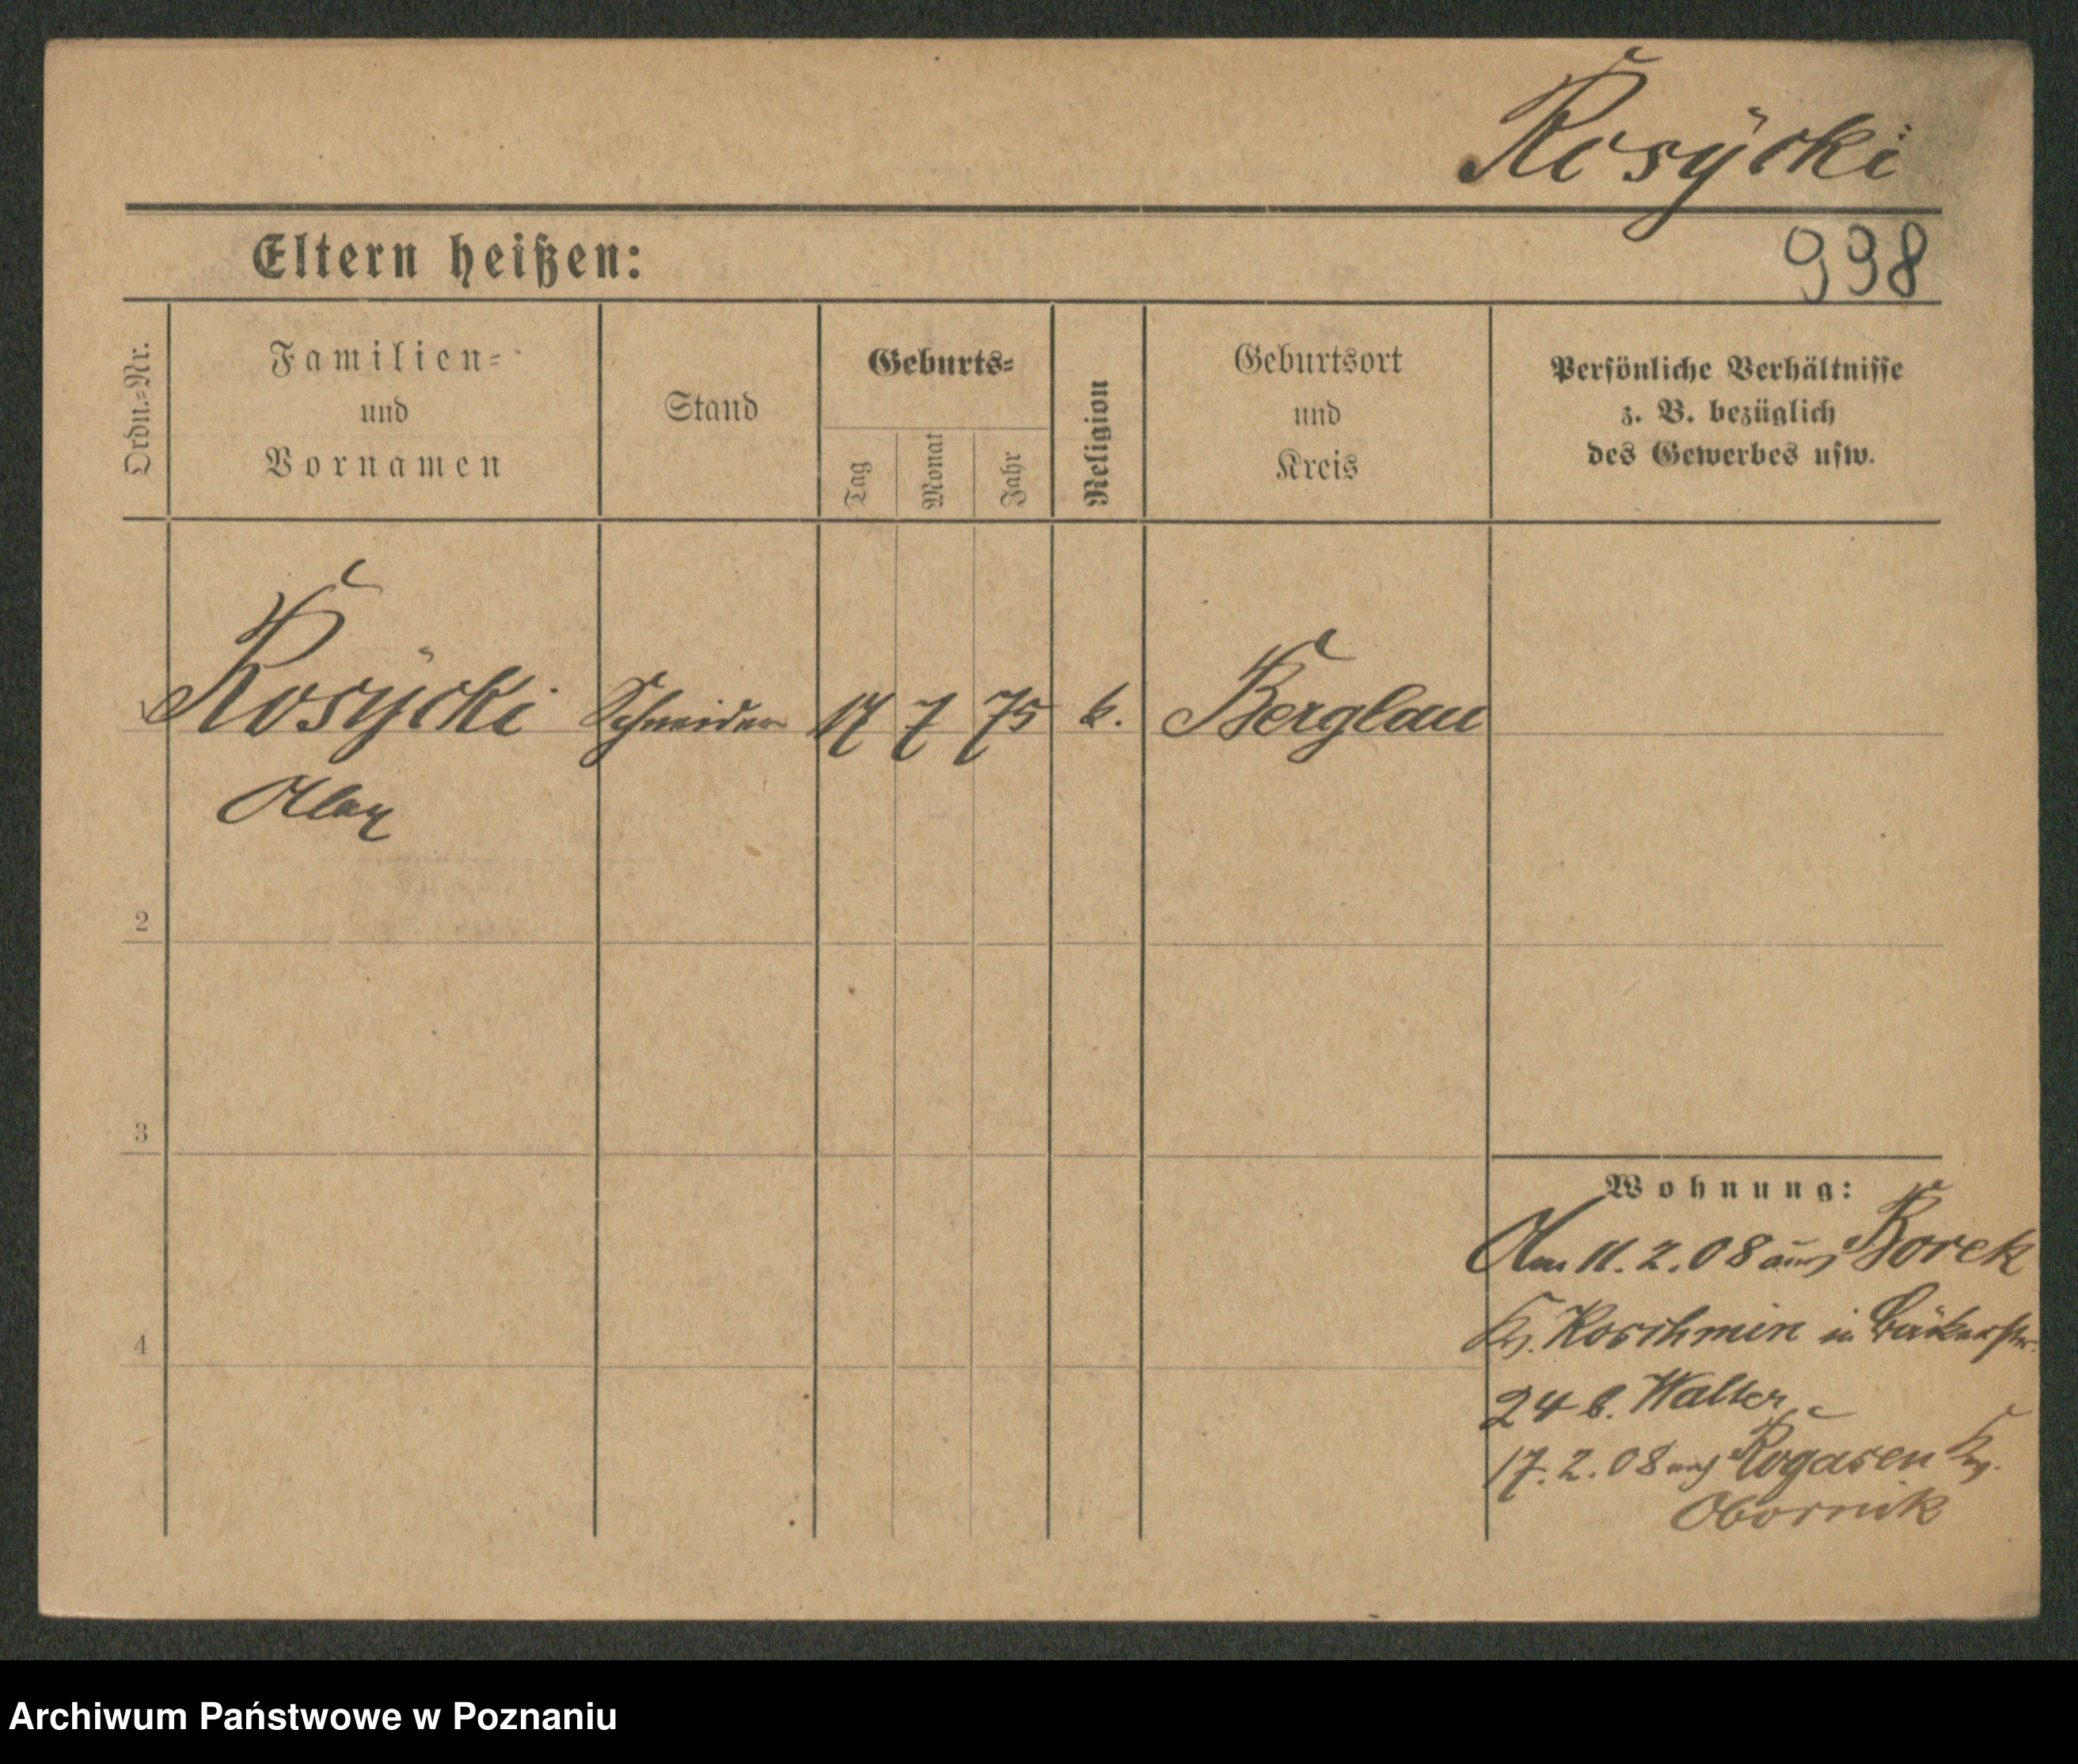 Rosÿcki
Eltern heißen:
998
Ordn.=Nr.
Familien=
und
Vornamen
Stand
Geburts=
Tag
Monat
Jahr
Religion
Geburtsort
und
Kreis
Persönliche Verhältnisse
z. B. bezüglich
des Gewerbes usw.
Rosÿcki Schneider 17 7 75 k. Berglau
2
3
Wohnung:
Am 11.2.08 aus Borek
Krs. Koschmin in Bäckerstr.
4
24 b. Walter
17.2.08 nach Rogasen Krs.
Obornik
Archiwum Państwowe w Poznaniu